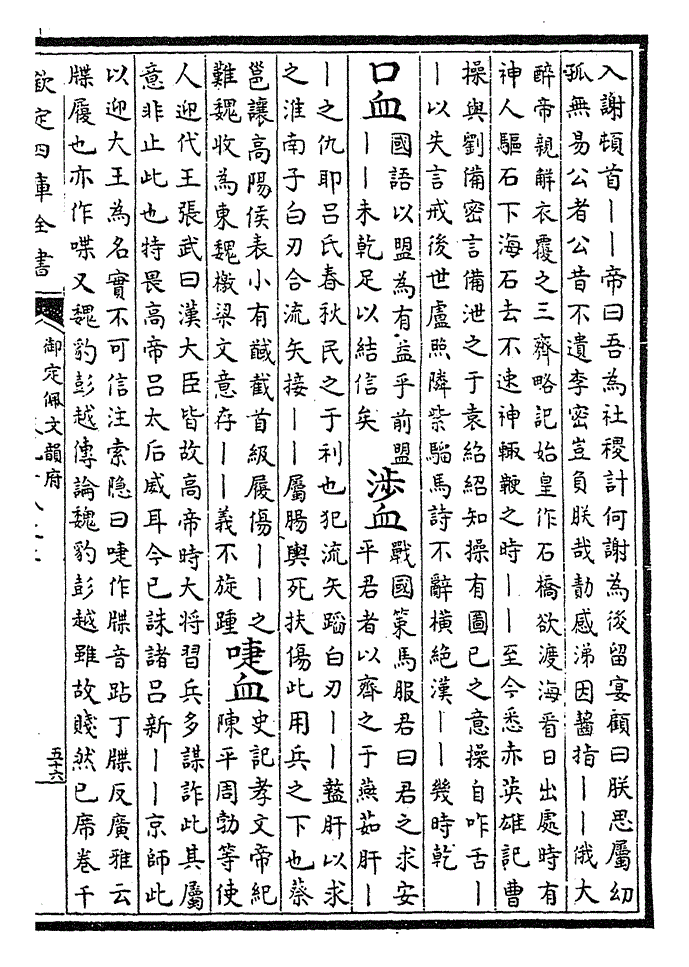 入謝頓首——帝曰吾為社稷計何謝為後留宴顧曰朕思屬幼
孤無易公者公昔不遺李密豈負朕哉勣感涕因齧指——俄大
醉帝親解衣覆之三齊略記始皇作石橋欲渡海看日出處時有
神人驅石下海石去不速神輒鞭之時——至今悉赤英雄記曹
操與劉備密言備泄之于袁紹紹知操有圖已之意操自咋舌—
—以失言戒後世盧照隣紫騮馬詩不辭橫絕漢——幾時乾
口血
國語以盟為有益乎前盟
——未乾足以結信矣
涉血
戰國策馬服君曰君之求安
平君者以齊之于燕茹肝—
—之仇耶呂氏春秋民之于利也犯流矢蹈白刃——盩肝以求
之淮南子白刃合流矢接——屬腸輿死扶傷此用兵之下也蔡
邕讓高陽侯表小有馘截首級履傷——之
難魏收為東魏檄梁文意存——義不旋踵
啑血
史記孝文帝紀
陳平周勃等使
人迎代王張武曰漢大臣皆故高帝時大将習兵多謀詐此其屬
意非止此也特畏高帝呂太后威耳今已誅諸呂新——京師此
以迎大王為名實不可信注索隐曰啑作牒音跕丁牒反廣雅云
牒履也亦作喋又魏豹彭越傳論魏豹彭越雖故賤然已席卷千
欽定四庫全書
御定佩文韻府
五十六